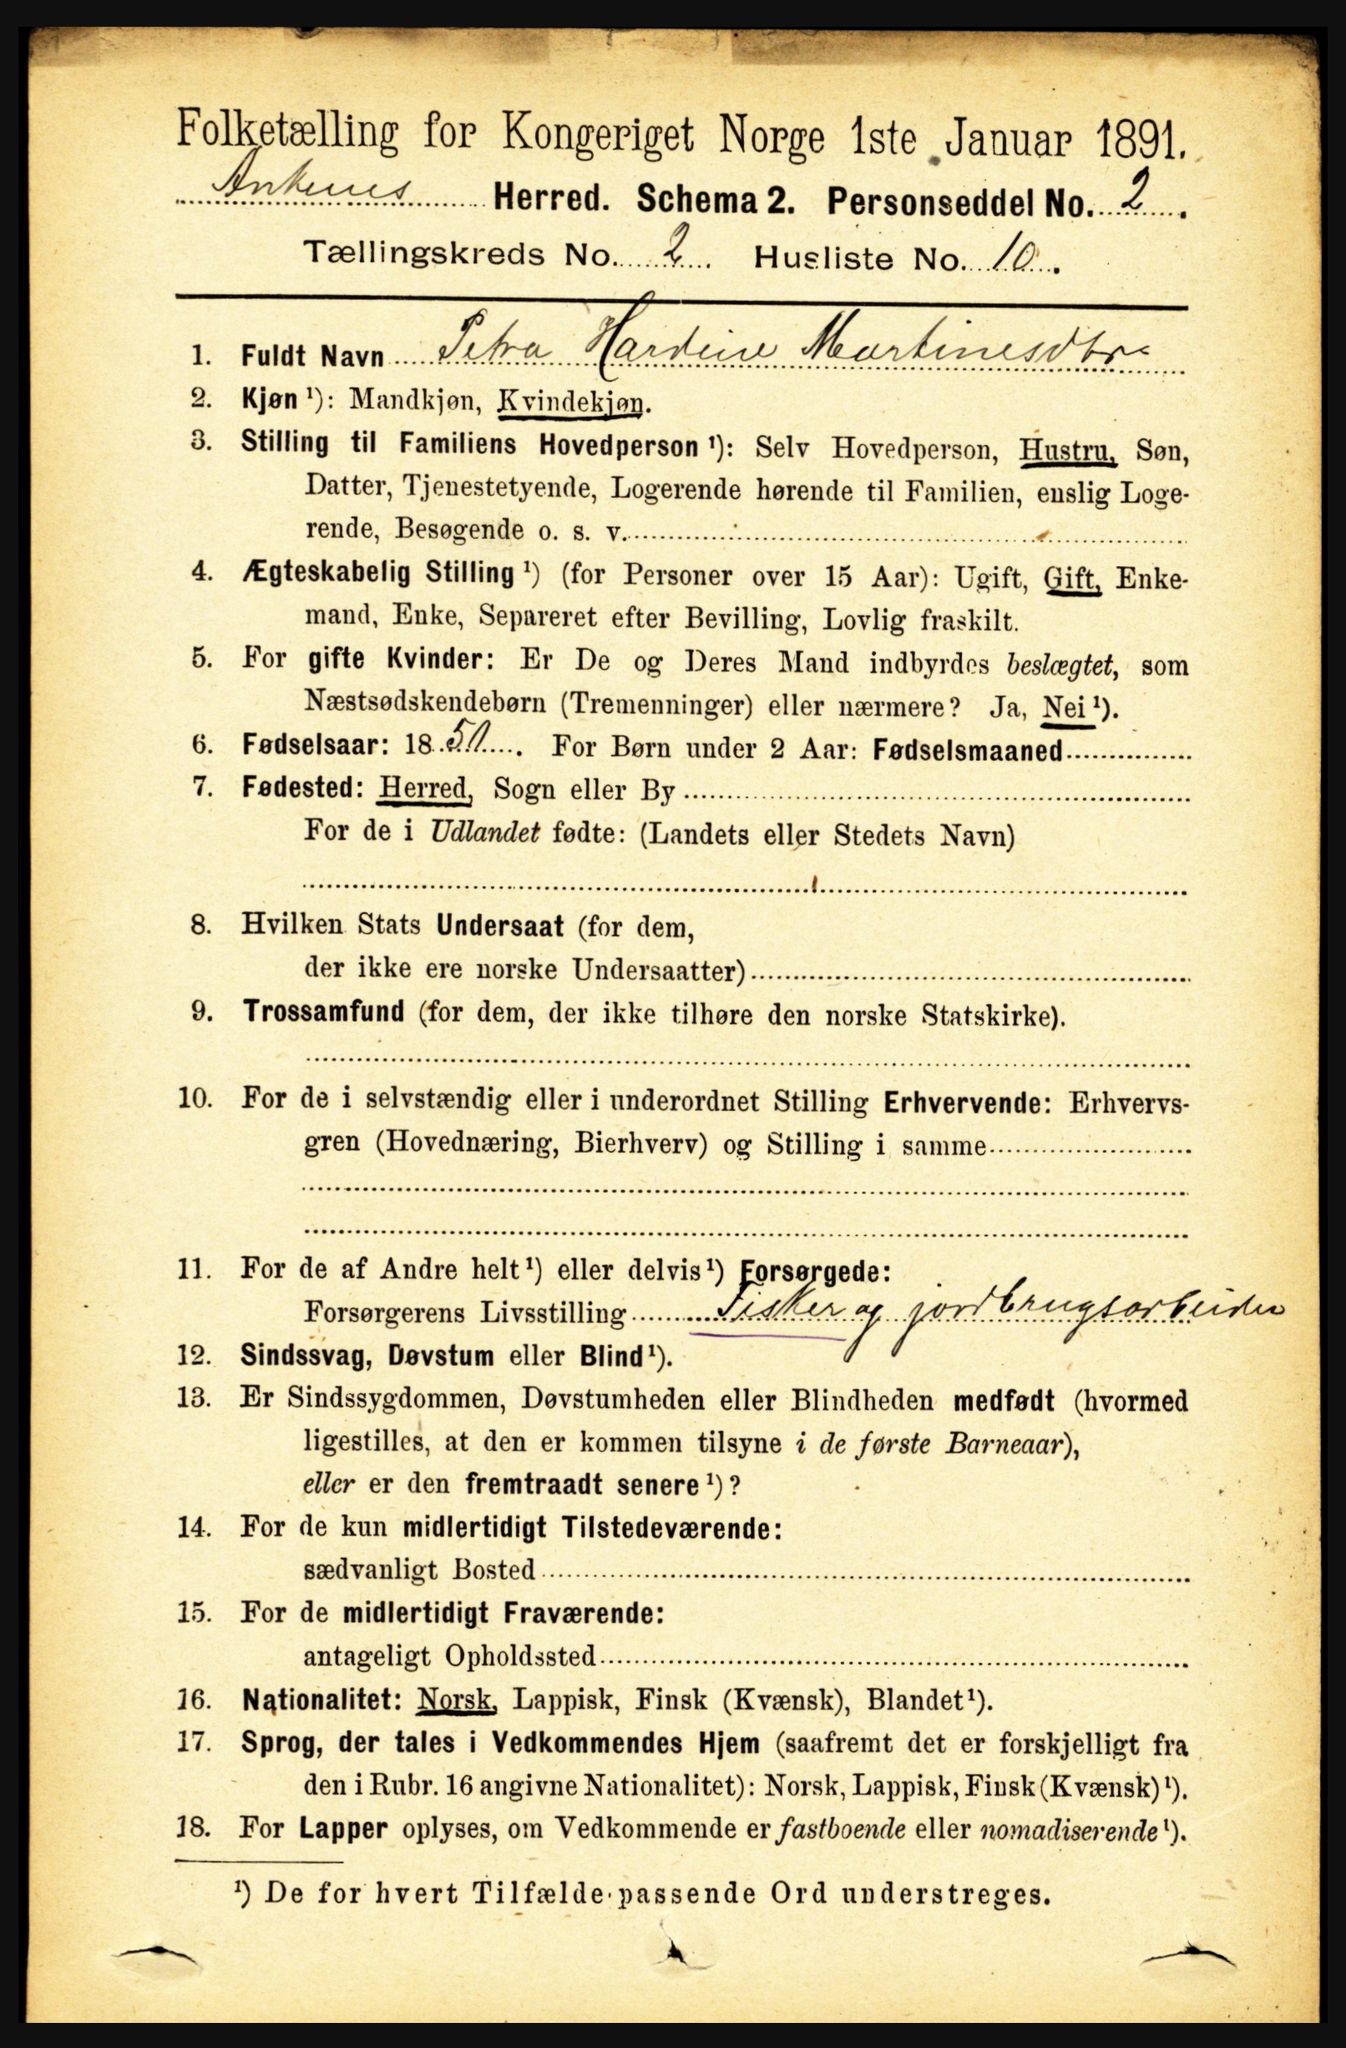 Folketælling for Kongeriget Norge 1ste Januar 1891.
Ankenes Herred. Schema 2. Personseddel No. 2.
Tællingskreds No. 2. Husliste No. 10.
1. Fuldt Navn Petra Hardine Martinesdtr
2. Kjøn ¹): Mandkjøn, Kvindekjøn.
3. Stilling til Familiens Hovedperson ¹): Selv Hovedperson, Hustru, Søn,
Datter, Tjenestetyende, Logerende hørende til Familien, enslig Loge-
rende, Besøgende o. s. v.
4. Ægteskabelig Stilling ¹) (for Personer over 15 Aar): Ugift, Gift, Enke-
mand, Enke, Separeret efter Bevilling, Lovlig fraskilt.
5. For gifte Kvinder: Er De og Deres Mand indbyrdes beslægtet, som
Næstsødskendebørn (Tremenninger) eller nærmere? Ja, Nei ¹).
6. Fødselsaar: 1851. For Børn under 2 Aar: Fødselsmaaned
7. Fødested: Herred, Sogn eller By
For de i Udlandet fødte: (Landets eller Stedets Navn)
8. Hvilken Stats Undersaat (for dem,
der ikke ere norske Undersaatter)
9. Trossamfund (for dem, der ikke tilhøre den norske Statskirke).
10. For de i selvstændig eller i underordnet Stilling Erhvervende: Erhvervs-
gren (Hovednæring, Bierhverv) og Stilling i samme
11. For de af Andre helt ¹) eller delvis ¹) Forsørgede:
Forsørgerens Livsstilling Fisker og jordbrugsarbeider
12. Sindssvag, Døvstum eller Blind ¹).
13. Er Sindssygdommen, Døvstumheden eller Blindheden medfødt (hvormed
ligestilles, at den er kommen tilsyne i de første Barneaar),
eller er den fremtraadt senere ¹)?
14. For de kun midlertidigt Tilstedeværende:
sædvanligt Bosted
15. For de midlertidigt Fraværende:
antageligt Opholdssted
16. Nationalitet: Norsk, Lappisk, Finsk (Kvænsk), Blandet ¹).
17. Sprog, der tales i Vedkommendes Hjem (saafremt det er forskjelligt fra
den i Rubr. 16 angivne Nationalitet): Norsk, Lappisk, Finsk (Kvænsk) ¹).
18. For Lapper oplyses, om Vedkommende er fastboende eller nomadiserende ¹).
¹) De for hvert Tilfælde passende Ord understreges.